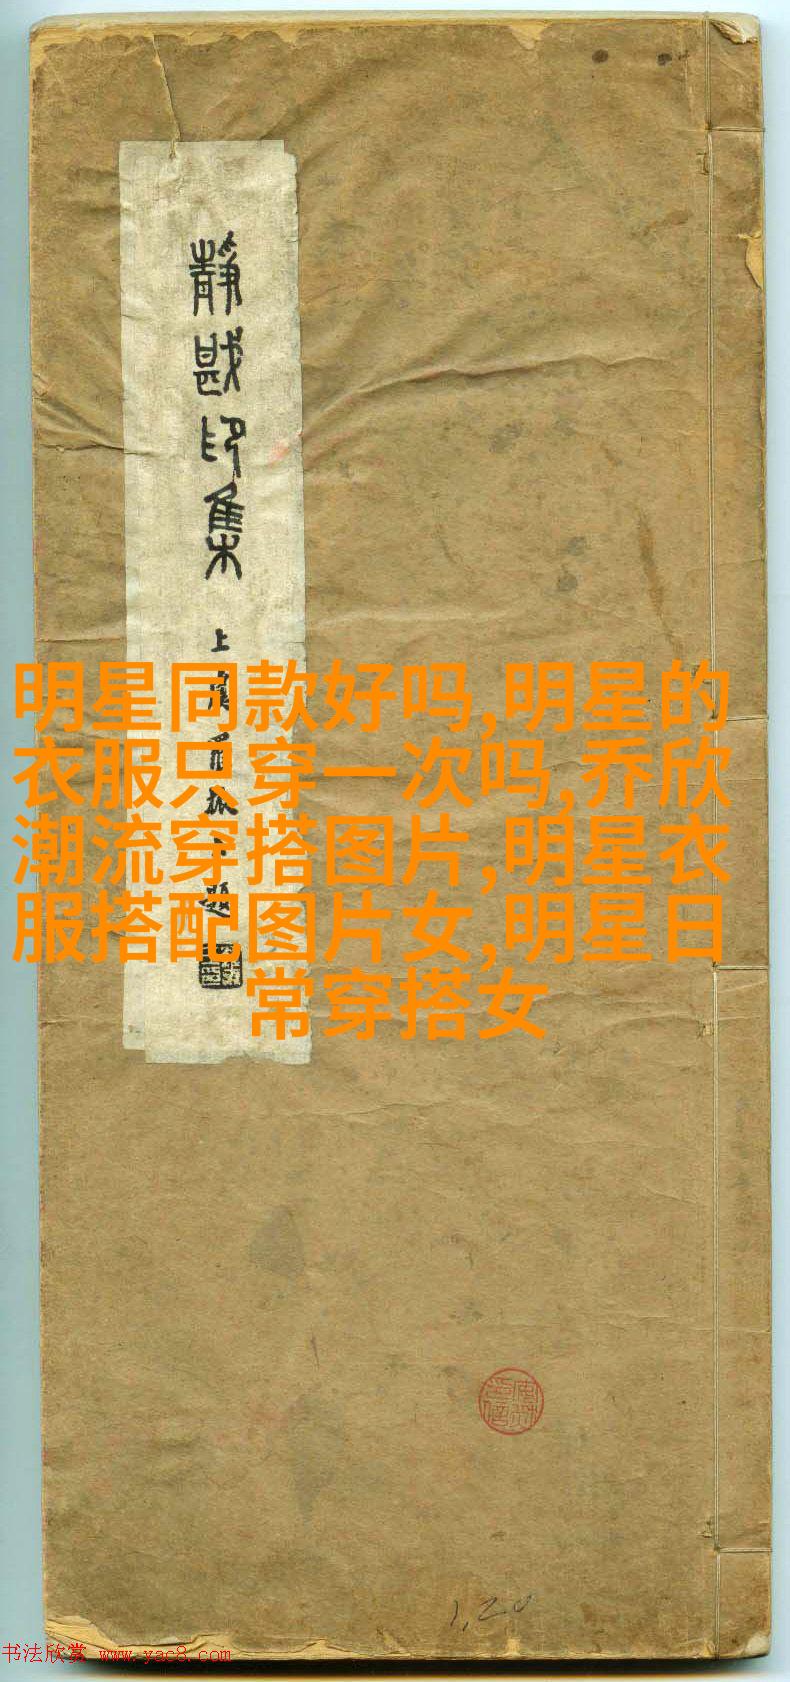 靜戡印集
明星同款好吗,明星的
衣服只穿一次吗,乔欣
潮流穿搭图片,明星衣
服搭配图片女,明星日
常穿搭女
1,20
书法欣赏 www.yac8.com